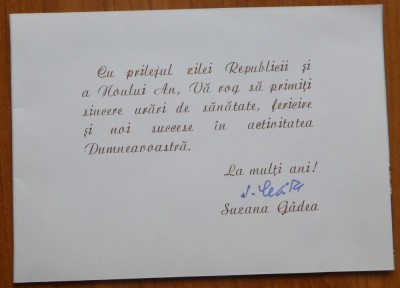 Cu prilejul zilei Republicii și
a Noului An, Vă rog să primiți
sincere urări de sănătate, fericire
și noi succese în activitatea
Dumneavoastră.
La mulți ani!
Suzana Gâdea